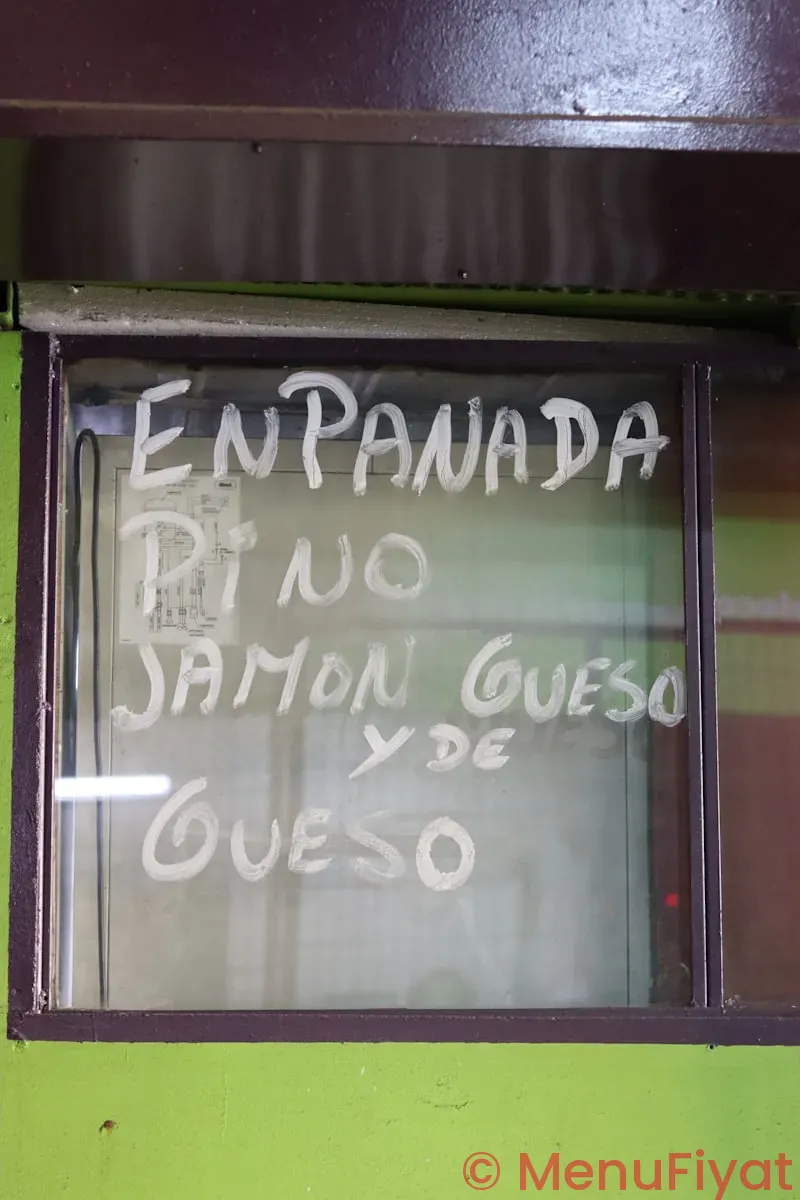 EnPANADA
PiNO
JAMON GUESO
Y DE
GUESO
© MenuFiyat